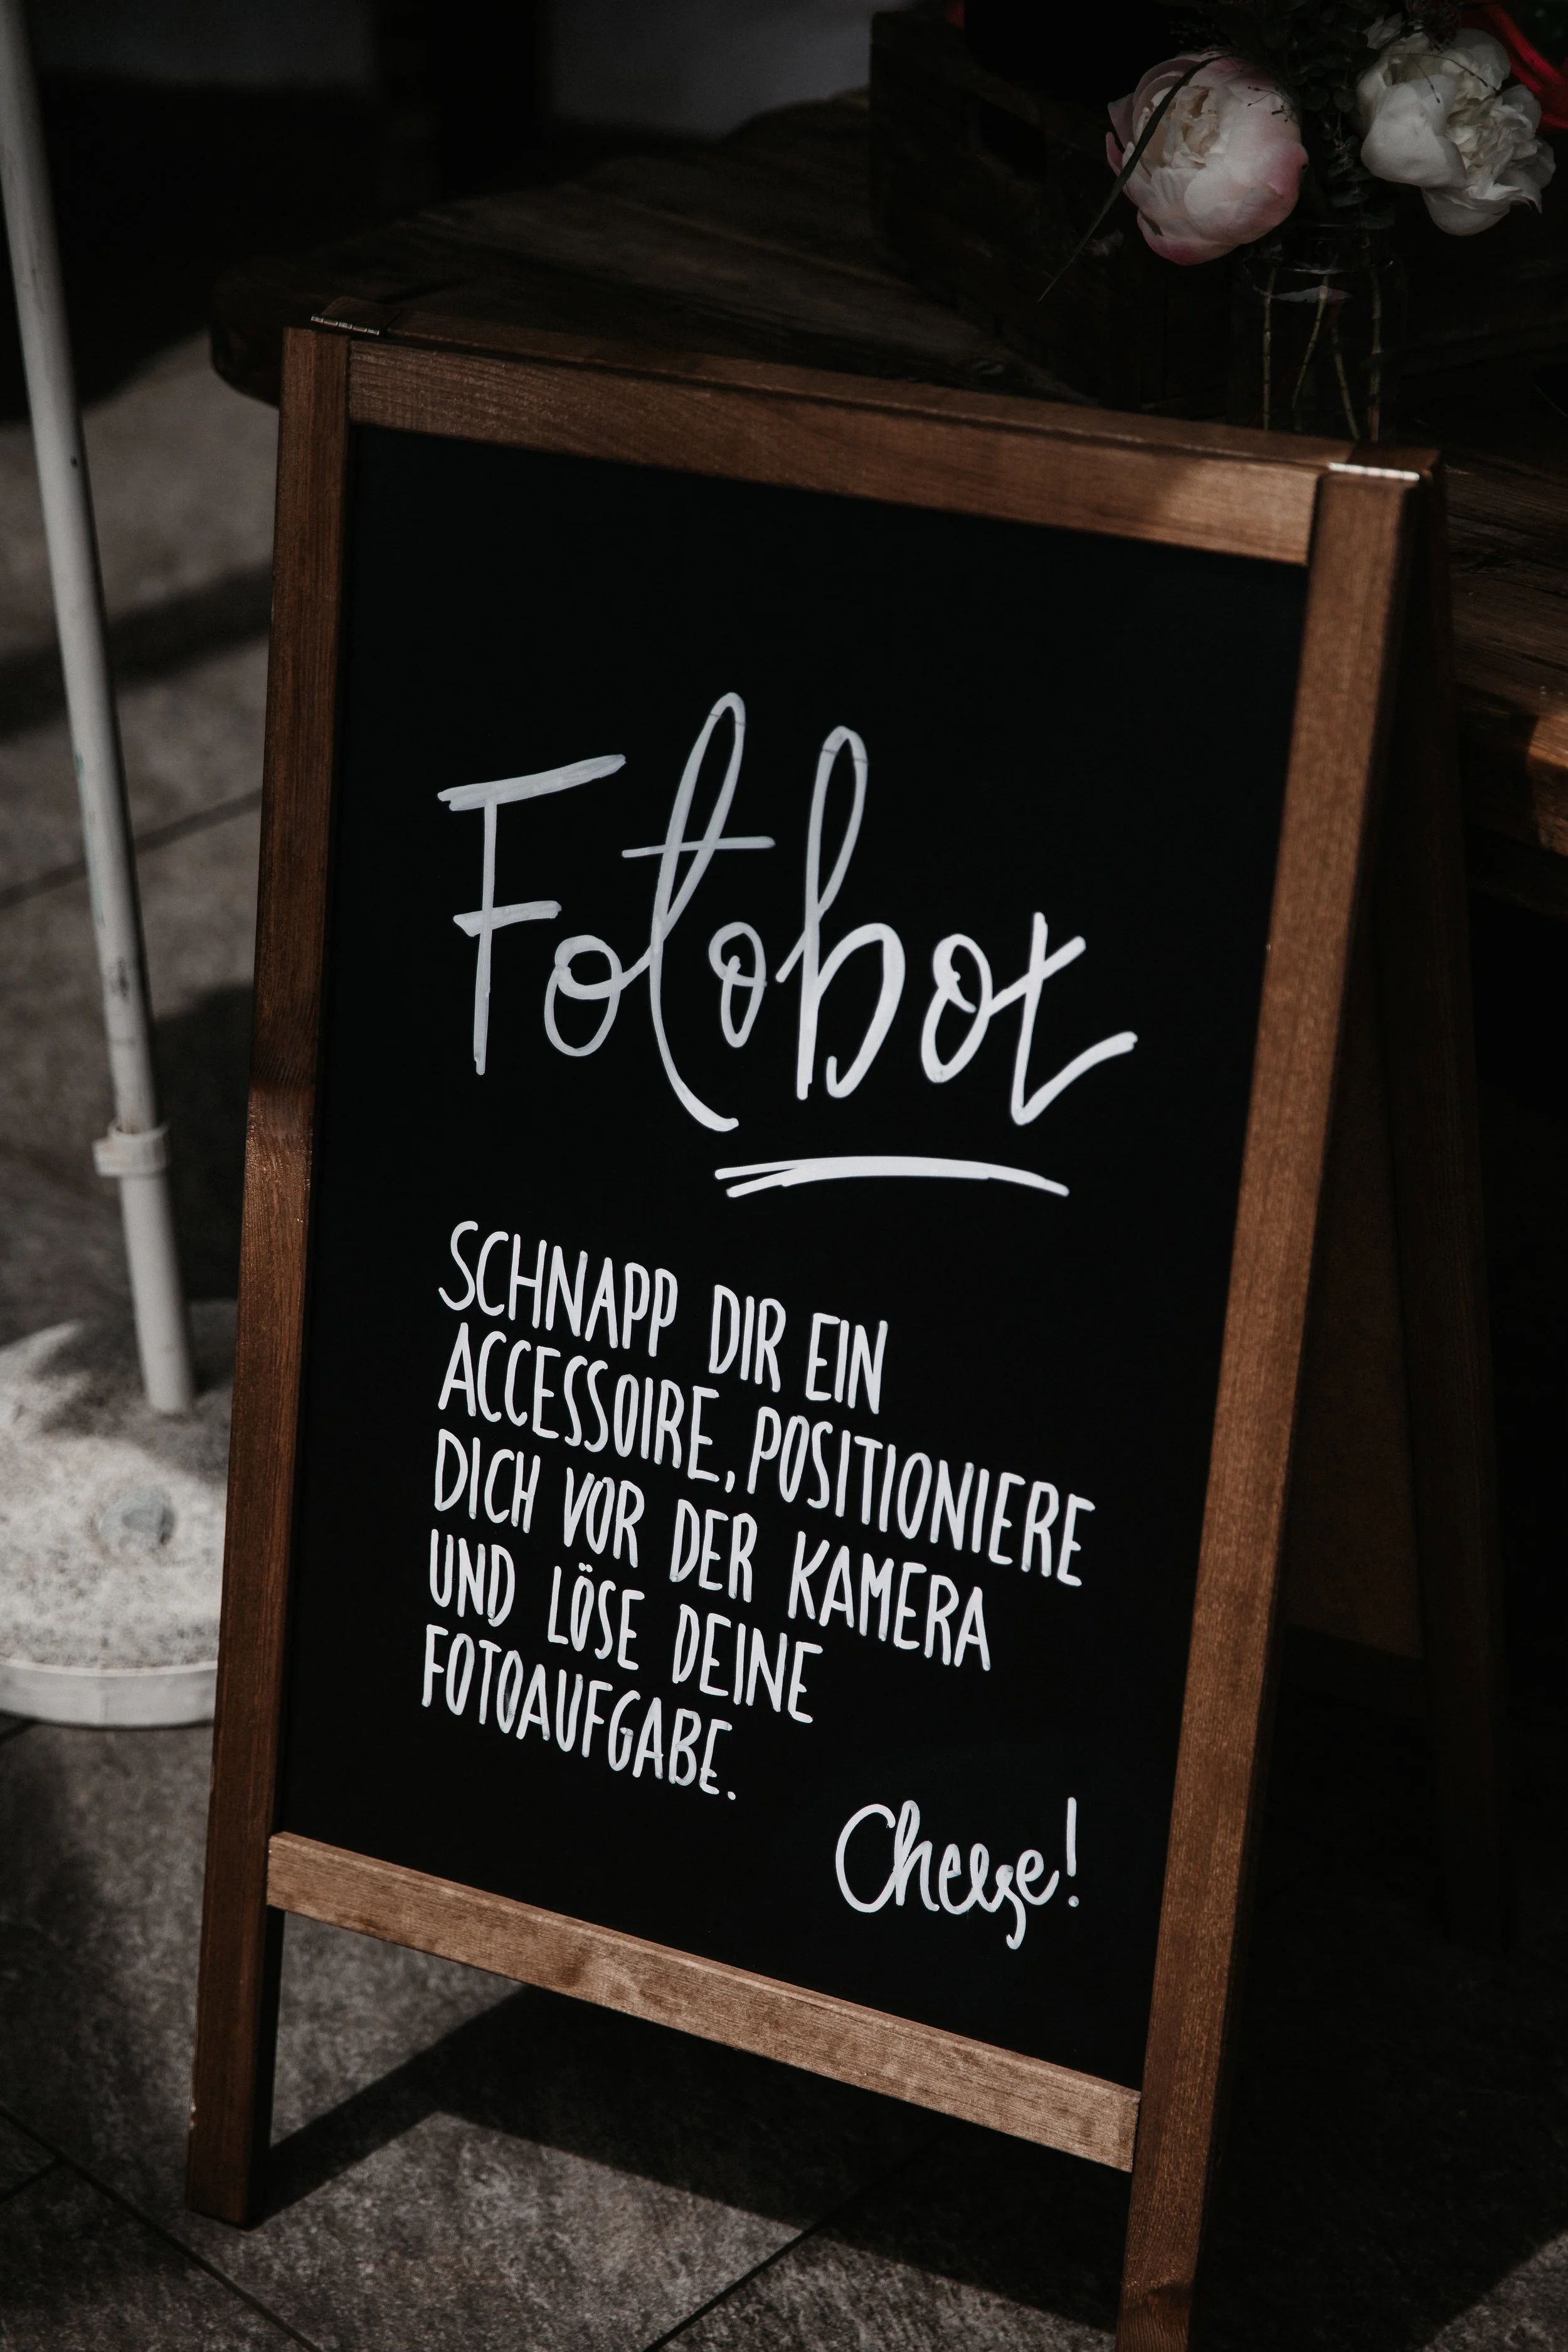 Fotobox
SCHNAPP DIR EIN
ACCESSOIRE, POSITIONIERE
DICH VOR DER KAMERA
UND LÖSE DEINE
FOTOAUFGABE.
Cheese!